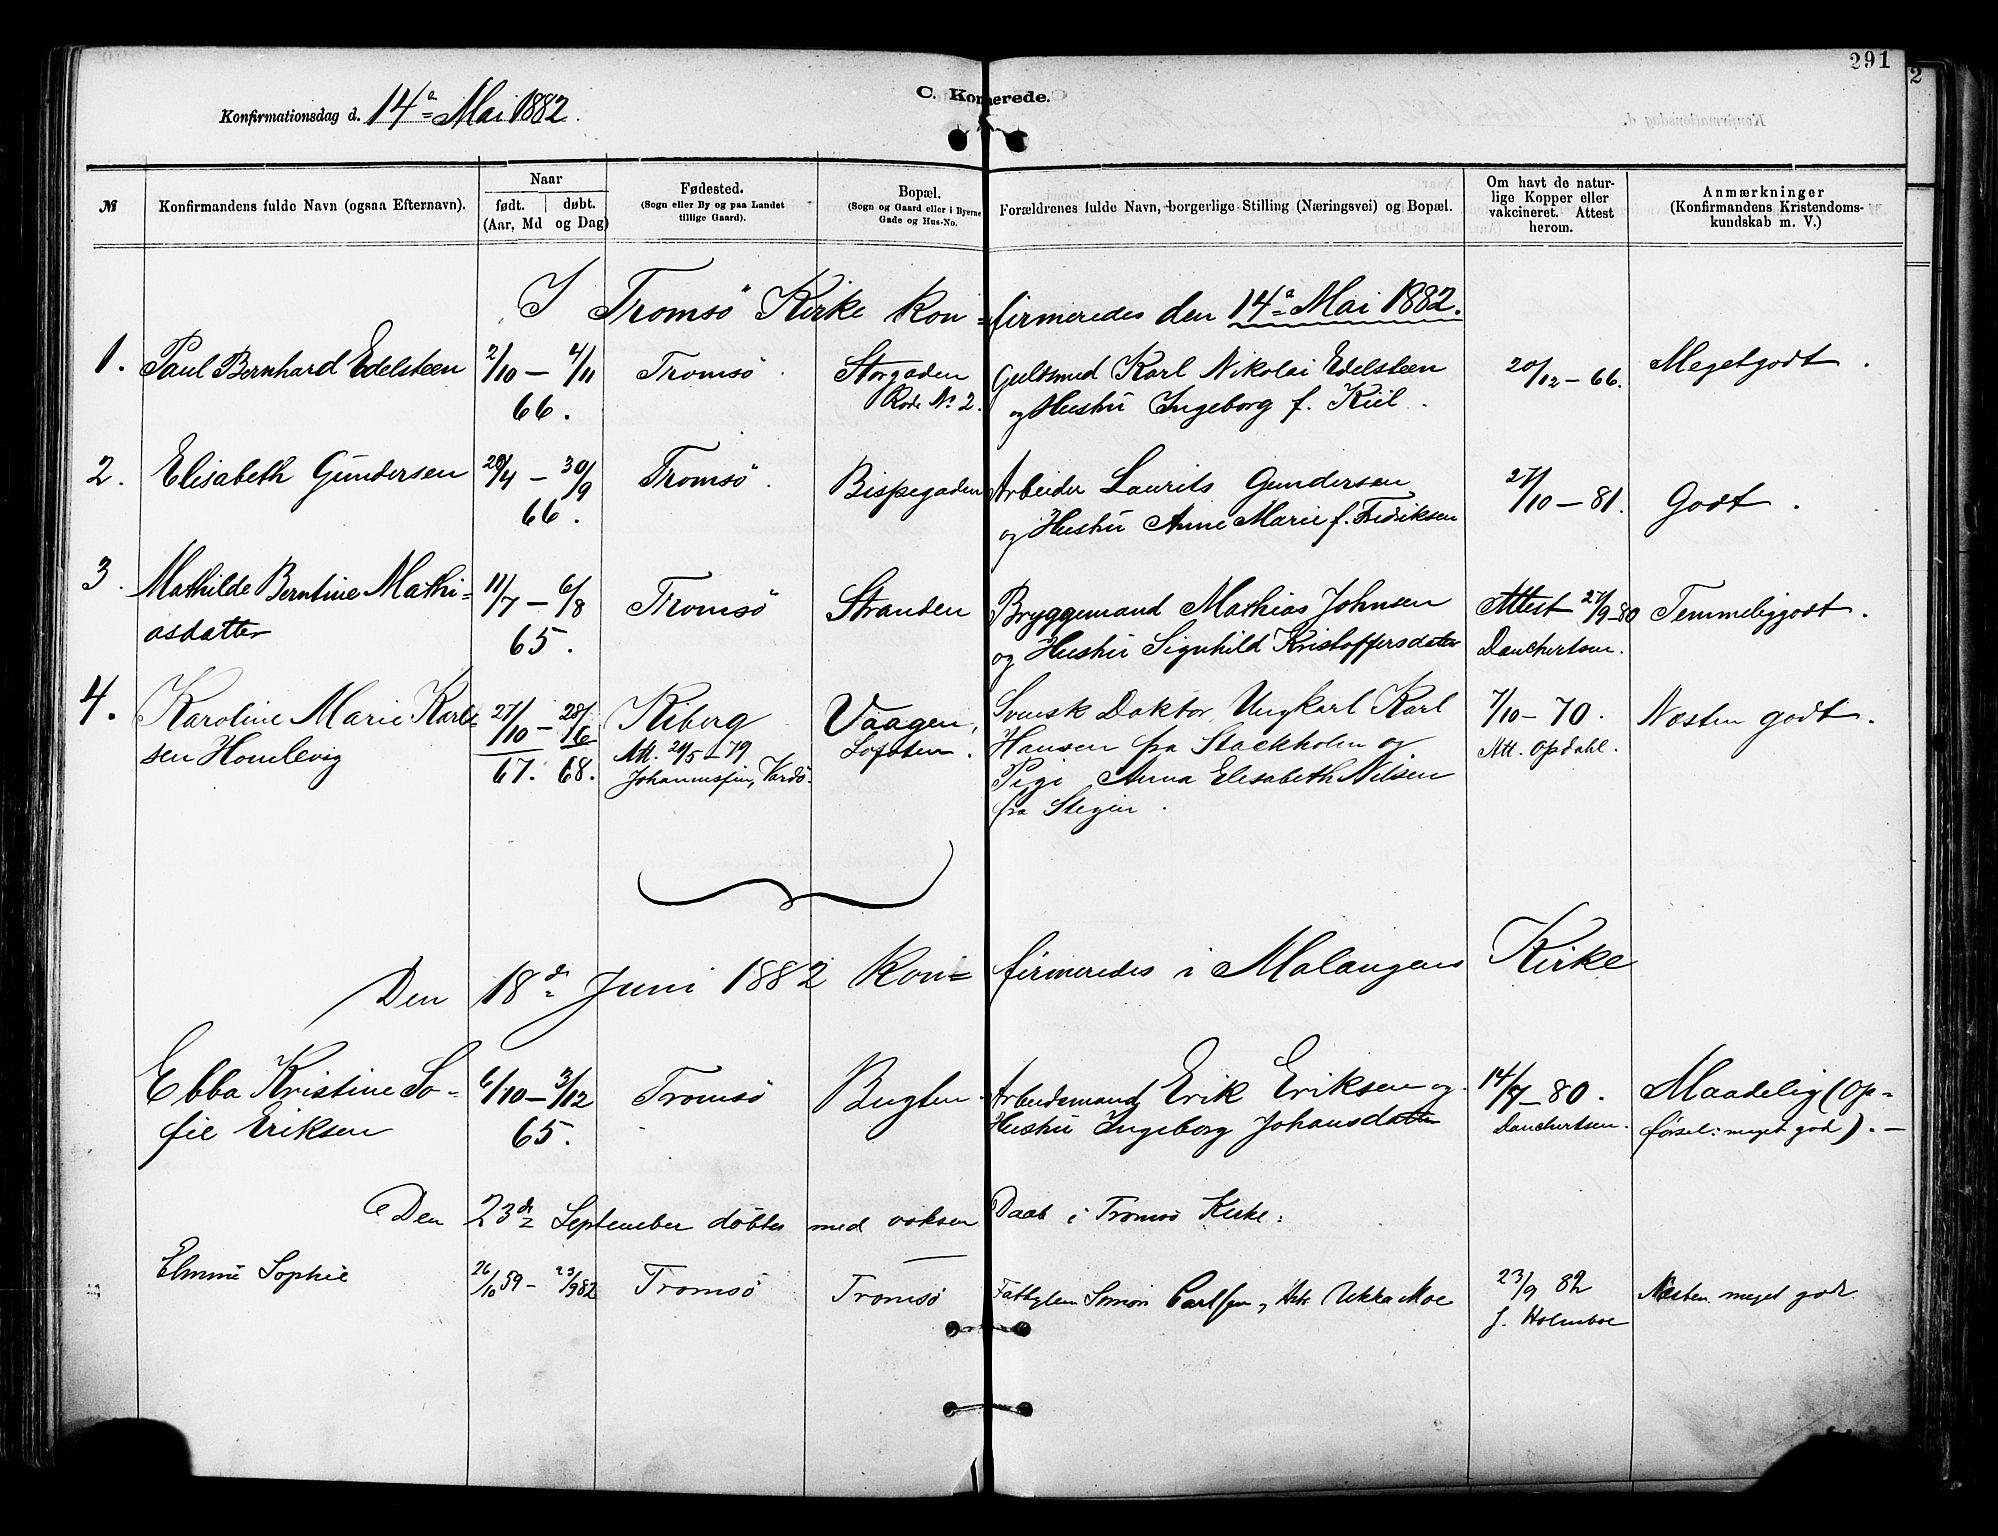 291
2
C. Konerede.
Konfirmationsdag d. 14de Mai 1882.
№
Konfirmandens fulde Navn (ogsaa Efternavn).
Naar
født. døbt.
(Aar, Md og Dag)
Fødested.
(Sogn eller By og paa Landet
tillige Gaard).
Bopæl.
(Sogn og Gaard eller i Byerne
Gade og Hus-No.
Forældrenes fulde Navn, borgerlige Stilling (Næringsvei) og Bopæl.
Om havt de natur-
lige Kopper eller
vakcineret. Attest
herom.
Anmærkninger
(Konfirmandens Kristendoms-
kundskab m. V.)
I Tromsö Kirke kon= firmeredes den 14de Mai 1882.
1. Paul Bernhard Edelsteen
2/10 – 4/11
66.
Tromsö.
Storgaden
Rode No 2.
Guldsmed Karl Nikolai Edelsteen
og Hustru Ingeborg f. Kiil.
20/12 – 66.
Megetgodt.
2. Elisabeth Gundersen
28/4 – 30/9
66.
Tromsö.
Bispegaden
Arbeider Laurits Gundersen
og Hustru Anne Marie f. Fredriksen
27/10 – 81.
Godt.
3. Mathilde Berntine Mathi=
asdatter
11/7 – 6/8
65.
Tromsö
Stranden
Bryggemand Mathias Johnsen
og Hustru Signhild Kristoffersdatter
Attest 27/9–80
Danchertsen.
Temmeliggodt.
4. Karoline Marie Karl=
sen Homlevig
27/10 – 28/6
67. 68.
Kiberg
Att. 20/5 – 79
Vardö.
Vaagen,
Lofoten.
Svensk Doktor, Ungkarl Karl
Hansen fra Stockholm og
Pige Anna Elisabeth Nilsen
fra Stegen.
7/10 – 70.
Att. Opdahl.
Næsten godt.
Den 18de Juni 1882 kon= firmeredes i Malangens Kirke
Ebba Kristine So-
fie Eriksen
6/10 – 3/12
65.
Tromsö
Bugten
Arbeidsmand Erik Eriksen og
Hustru Ingeborg Johansdatter
14/7 – 80.
Danchertsen.
Maadelig (Op-
førsel: meget god). –
Den 23de September döbtes med voksen Daab i Tromsö Kirke:
Sophie
26/10 59 – 23/9 82
Tromsö
Tromsö
Simon Carlsen, Ukka Moe
23/9 82
J. Holmboe
Næsten meget god.